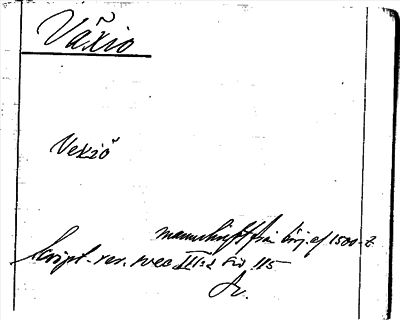 Växio
Vexiö
manuskript från börj. af 1500-t.
Script. rer. svec III:2 sid 115